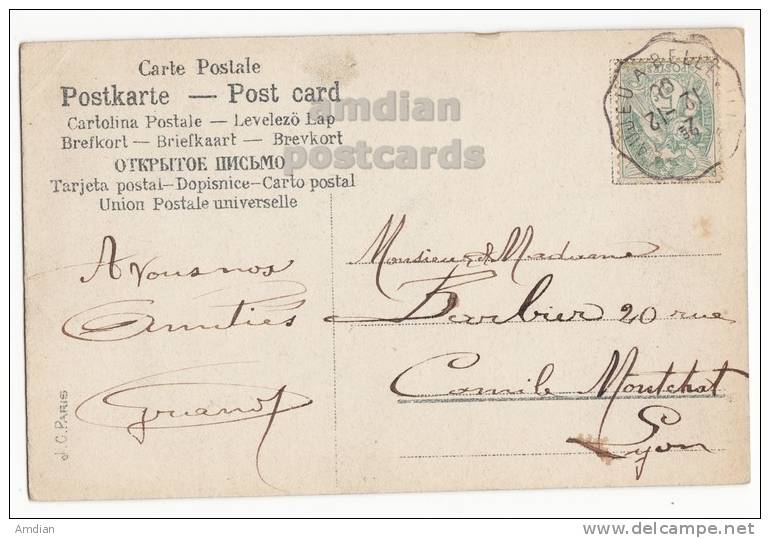 Carte Postale
Postkarte — Post card
Cartolina Postale — Levelezö Lap
Brefkort — Briefkaart — Brevkort
ОТКРЫТОЕ ПИСЬМО
Tarjeta postal—Dopisnice—Carto postal
Union Postale universelle
amdian
postcards
POSTES
A vous nos
Amitiés
Monsieur & Madame
Barbier 20 rue
Camile Montchat
Lyon
J.C. PARIS
Amdian
www.delcampe.net